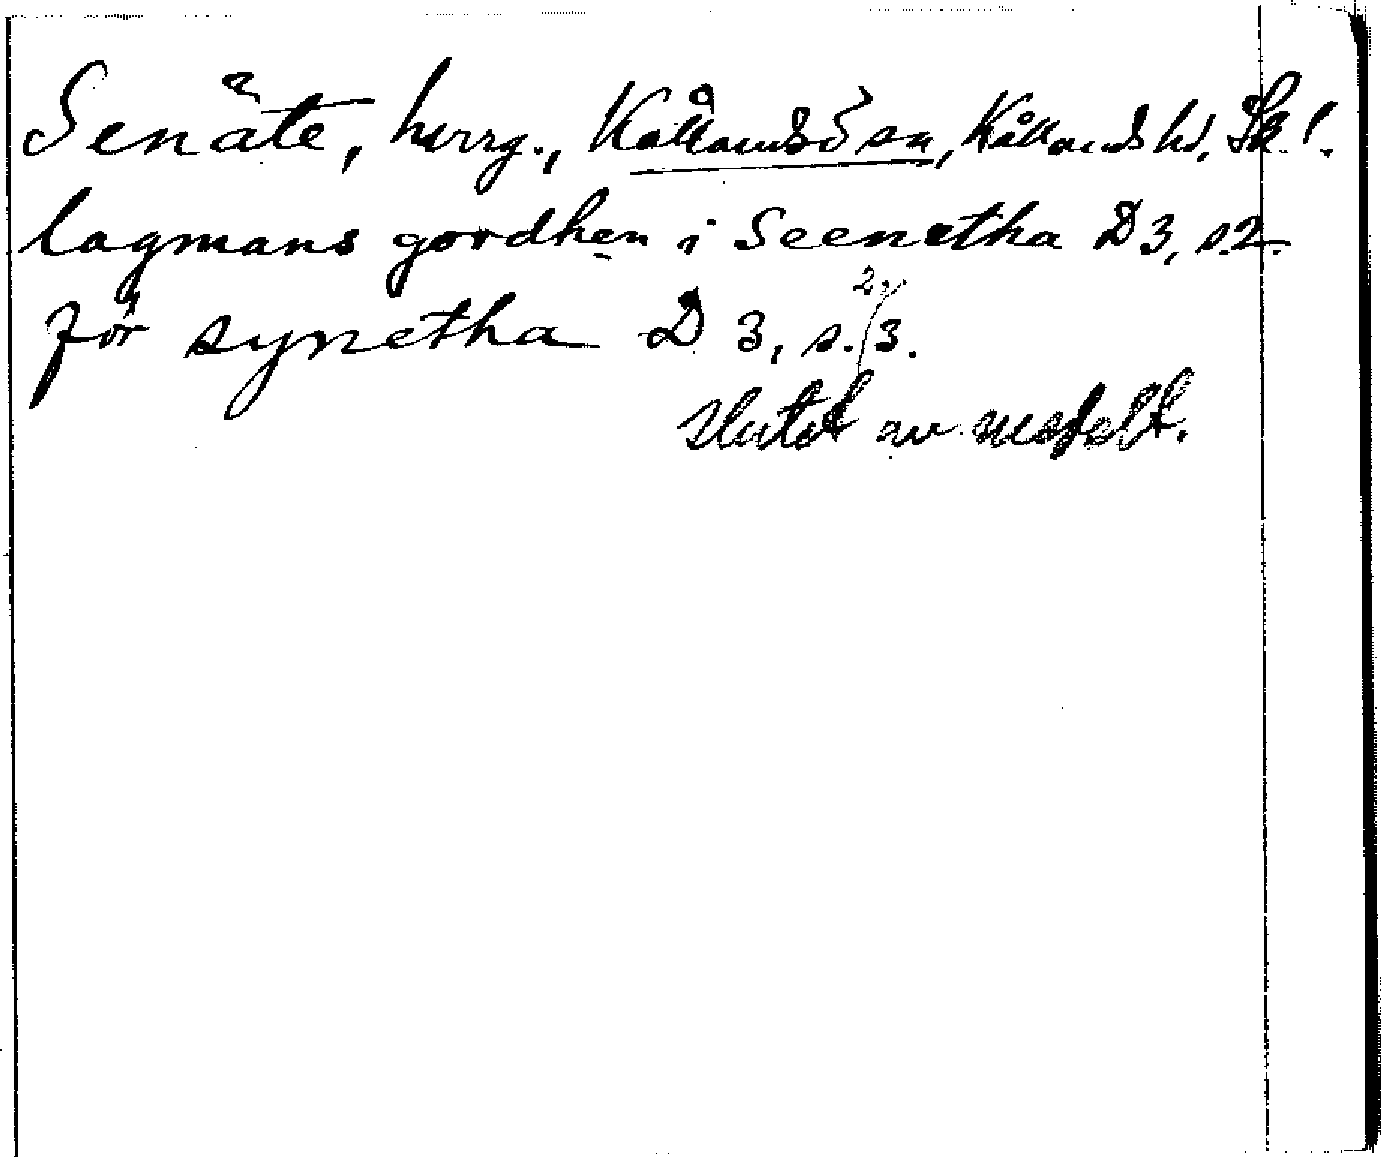 Senäte, herrg., Kållandsö sn, Kållands hd, Sk. l.
lagmans gordhen i Seenetha D 3, s. 2.
för synetha D 3, s. 3.
2,
slutet av